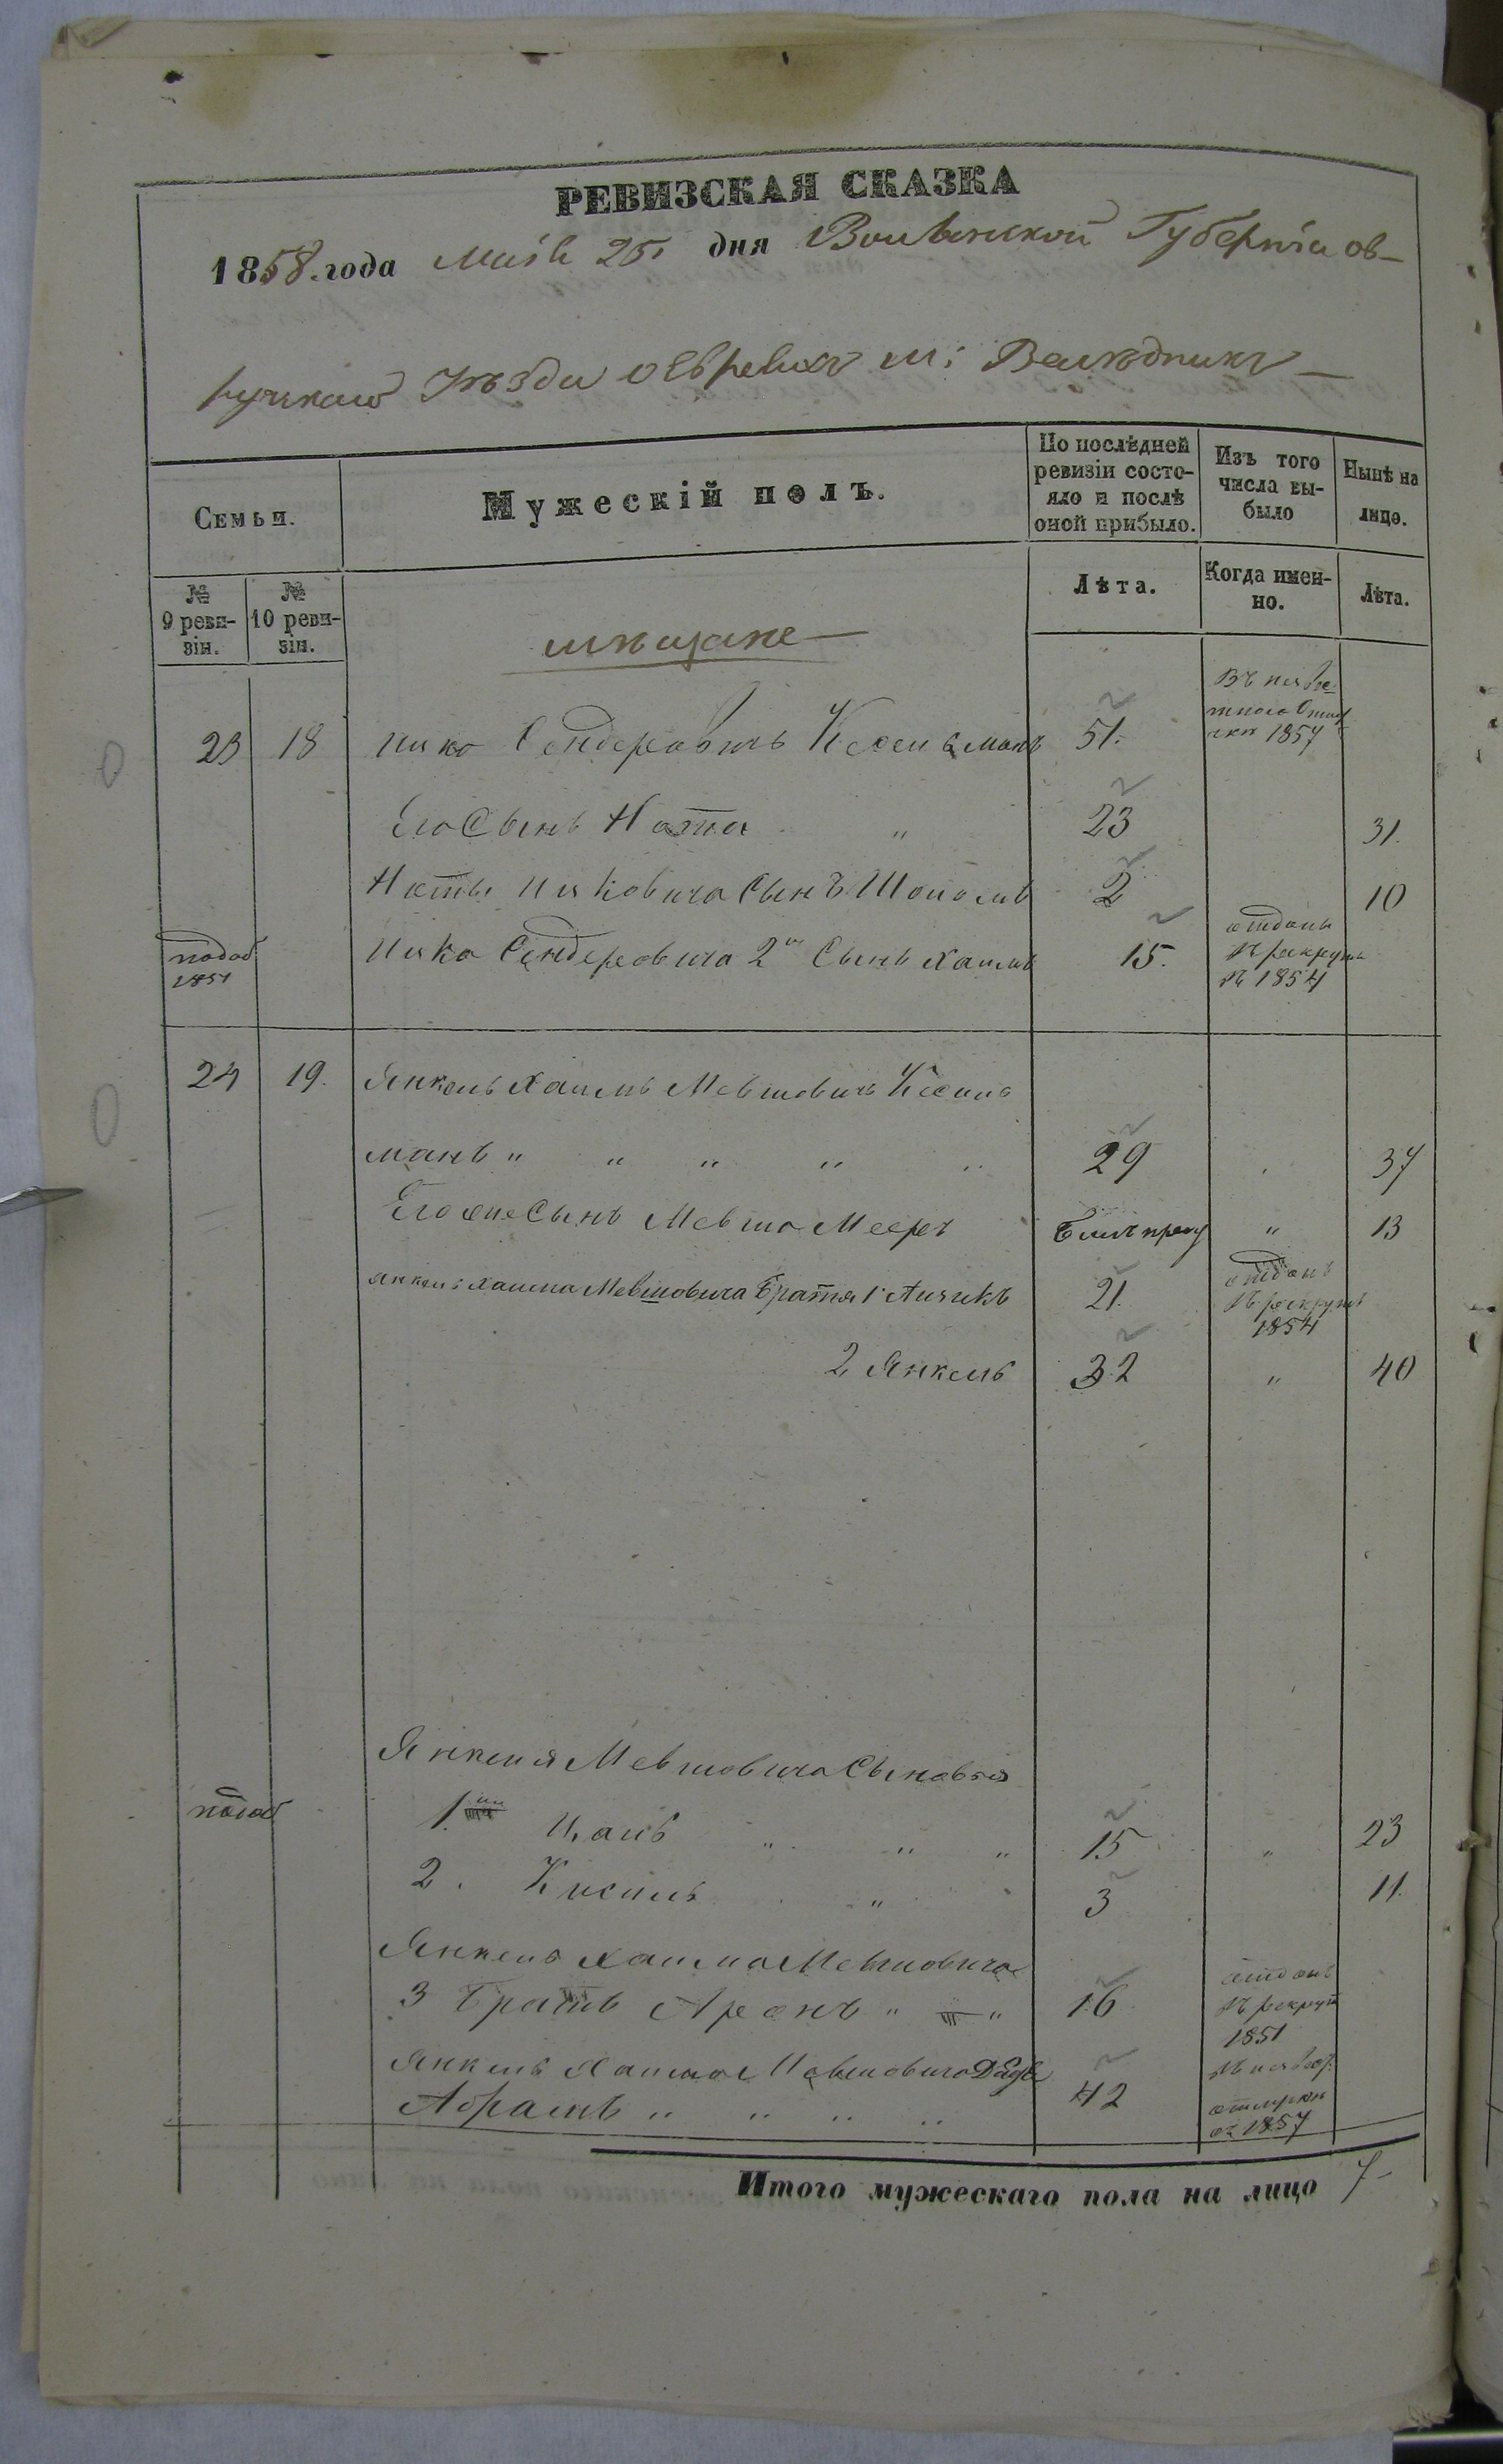 РЕВИЗСКАЯ СКАЗКА
1858. года Маія 25 дня Волынской Губерніи ов-
ручкаго Уѣзда о Евреяхъ м: Велѣдникъ
Семьи.
Мужескій полъ.
По послѣдней ревизіи состо-
яло и послѣ оной прибыло.
Изъ того числа вы-
было
Нынѣ на лицо.
№ 9 реви-
зіи.
№ 10 реви-
зіи.
Лѣта.
Когда имен-
но.
Лѣта.
мѣщане
23 18 Ицко Сендеровичъ 51. 1857
Его Сынъ Нота " 23 31.
Ноты Ицковича Сынъ 2 10
1851
Ицка Сендеровича 2й Сынъ Хаимъ 15. отданъ въ рекруты въ 1854
24 19. Янкель Хаимъ Мевшовичъ
манъ " " " " " 29 37
Его же Сынъ Мевша Мееръ " 13
Янкель Хаима Мевшовича Братья 1 Айзикъ 21. отданъ въ рекруты 1854
2 Янкель 32 " 40
Янкеля Мевшовича Сыновья
1. " " " 15 " 23
2. " 3 11.
Янкель Хаима Мевшовича
3 Братъ Аронъ " " 16 отданъ въ рекруты 1851
Янкель Хаима Мевшовича Дядя
Абрамъ " " " " 42 1857
Итого мужескаго пола на лицо 7